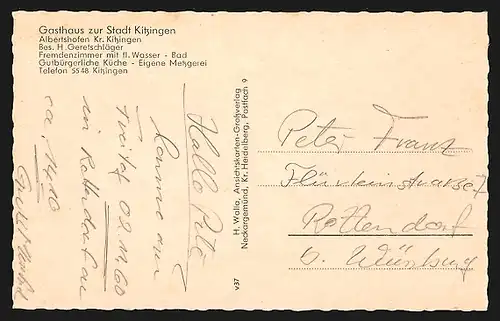 Gasthaus zur Stadt Kitzingen
Albertshofen Kr. Kitzingen
Bes. H. Geretschläger
Fremdenzimmer mit fl. Wasser - Bad
Gutbürgerliche Küche - Eigene Metzgerei
Telefon 5548 Kitzingen
Hallo Pete
komme am
Freitag
in Rottendorf an
ca. 14.10
H. Walla, Ansichtskarten-Großverlag
Neckargemünd, Kr. Heidelberg, Postfach 9
v37
Peter Franz
Rottendorf
b. Würzburg